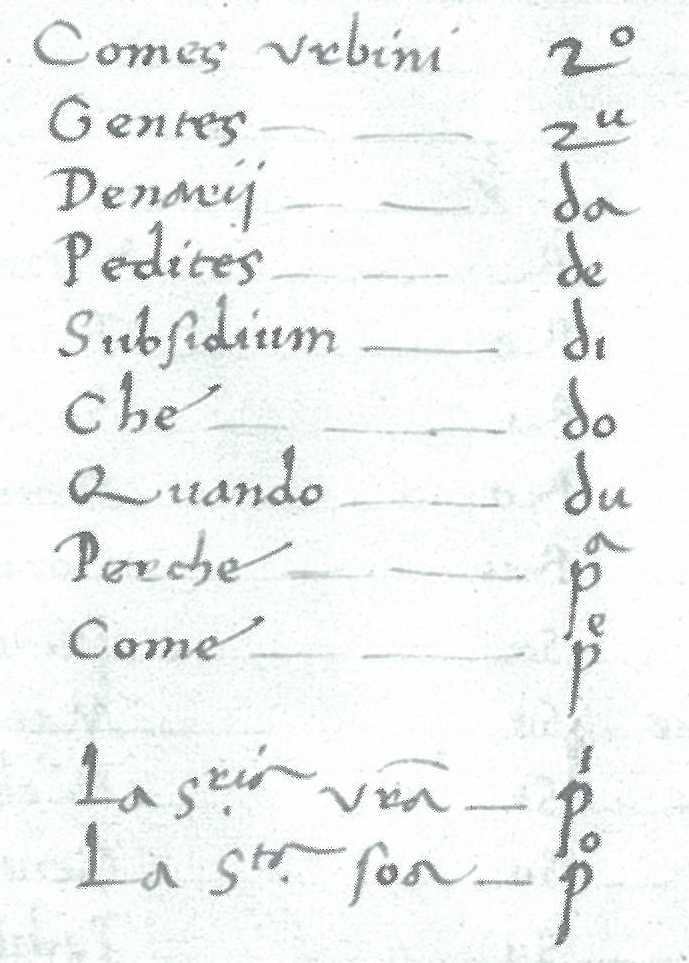 Comes Vrbini 2º
Gentes — — 2ᵘ
Denarij — — da
Pedites — — de
Subſidium — di
Che — — do
Quando — du
Perche — — pᵃ
Come — — pᵉ
La S.ʳⁱᵃ vr̃a — pⁱ
La S.ᵗᵃ ſoa — pº